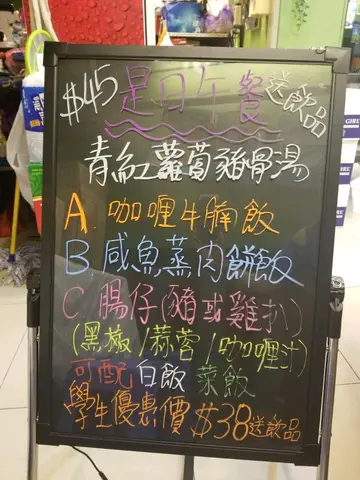 $45 是日午餐 送飲品
青紅蘿蔔豬骨湯
A. 咖喱牛腩飯
B. 咸魚蒸肉餅飯
C. 腸仔(豬或雞扒)
(黑椒/蒜蓉/咖喱汁)
可配 白飯 菜飯
學生優惠價 $38 送飲品